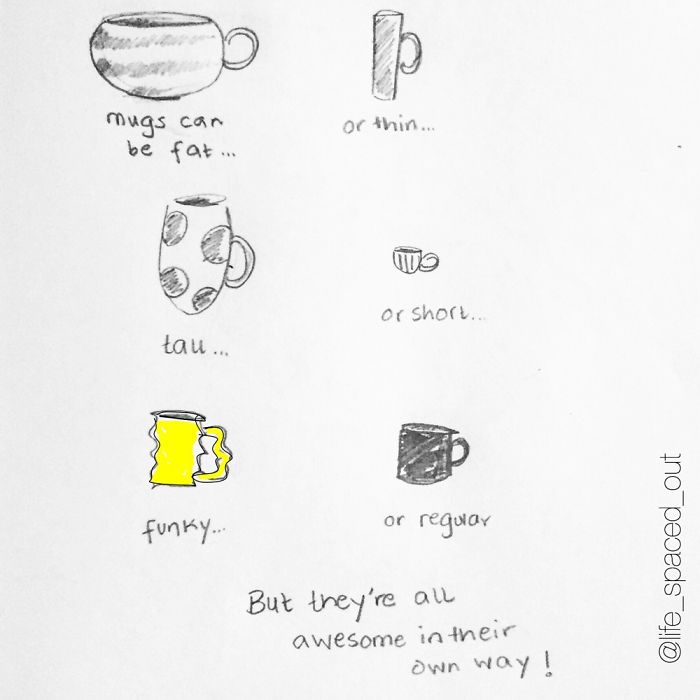 mugs can
be fat...
or thin...
tall...
or short...
funky...
or regular
But they're all
awesome in their
own way!
@life_spaced_out